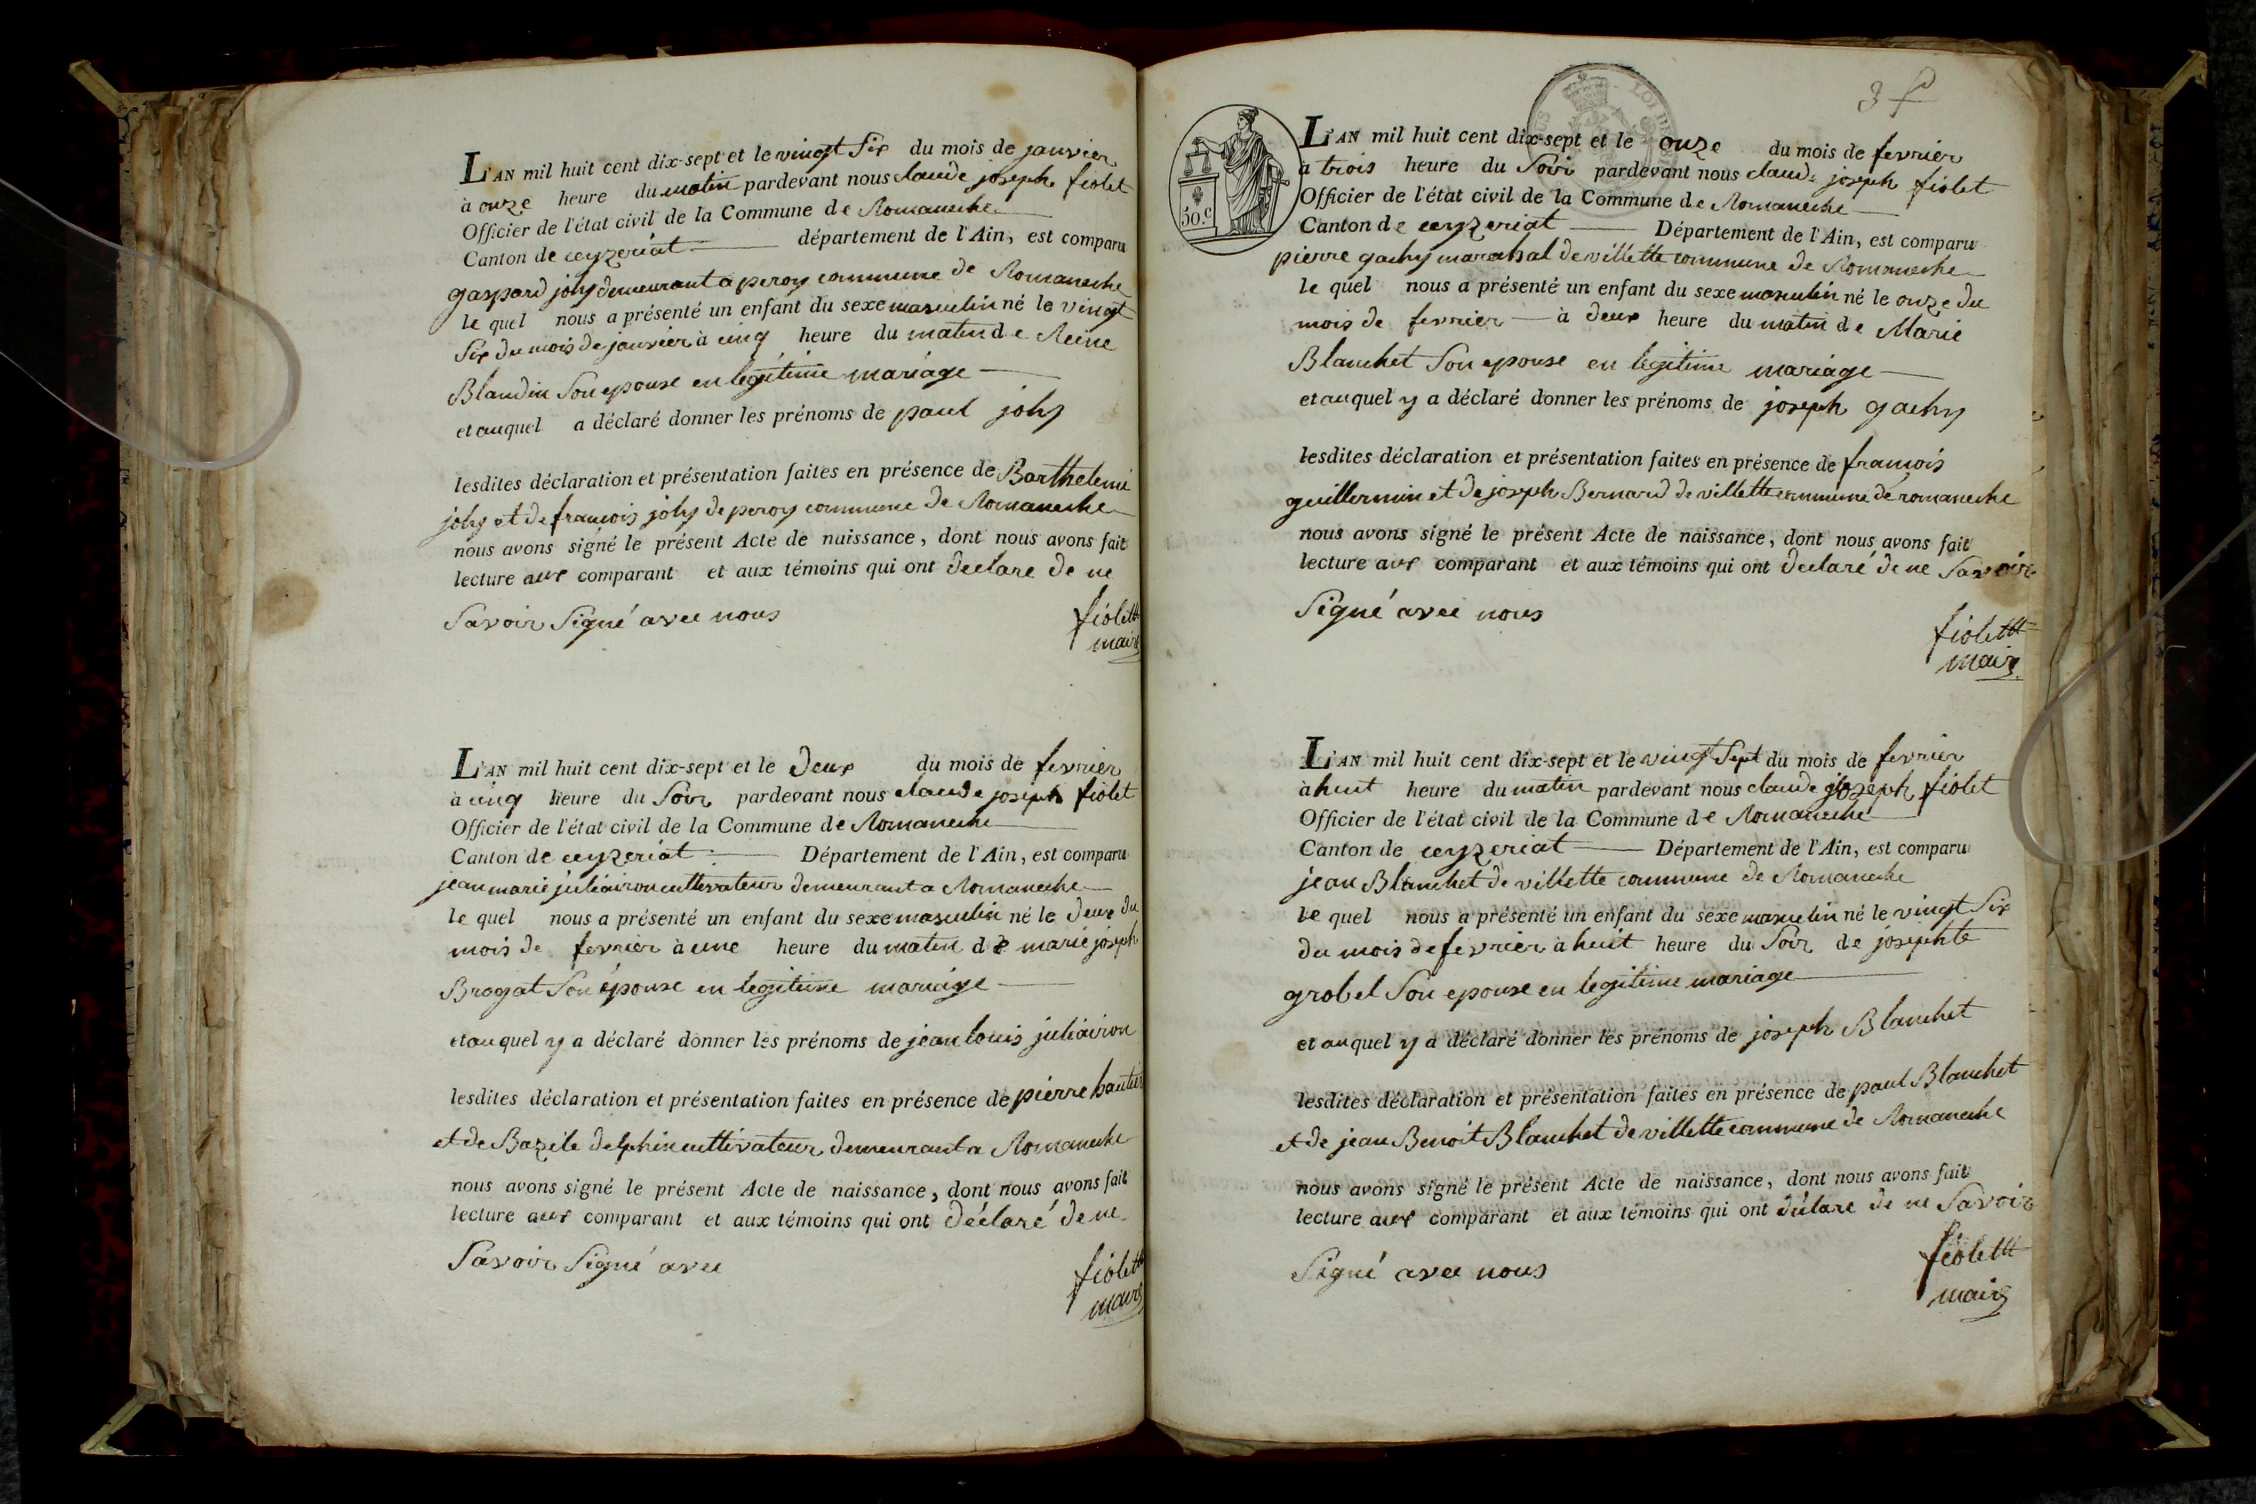 L'AN mil huit cent dix-sept et le vingt Six du mois de janvier
à onze heure du matin pardevant nous claude joseph fiolet
Officier de l'état civil de la Commune de Romaneche
Canton de ceyzeriat département de l'Ain, est comparu
gaspard joly demeurant a peroy commune de Romaneche
le quel nous a présenté un enfant du sexe masculin né le vingt
Six du mois de janvier à cinq heure du matin de Reine
Blandin Son epouse en legitime mariage
et auquel a déclaré donner les prénoms de paul joly
lesdites déclaration et présentation faites en présence de Barthelemi
joly et de francois joly de peroy commune de Romaneche
nous avons signé le présent Acte de naissance, dont nous avons fait
lecture aux comparant et aux témoins qui ont declare de ne
Savoir Signé avec nous
fiolet
maire
L'AN mil huit cent dix-sept et le deux du mois de fevrier
à cinq heure du Soir pardevant nous claude joseph fiolet
Officier de l'état civil de la Commune de Romaneche
Canton de ceyzeriat Département de l'Ain, est comparu
jean marie juliairon cultivateur demeurant a Romaneche
le quel nous a présenté un enfant du sexe masculin né le deux du
mois de fevrier à une heure du matin de marie joseph
Brogat Son épouse en legitime mariage
et au quel y a déclaré donner les prénoms de jean louis juliairon
lesdites déclaration et présentation faites en présence de pierre
et de Bazile delphin cultivateur demeurant a Romaneche
nous avons signé le présent Acte de naissance, dont nous avons fait
lecture aux comparant et aux témoins qui ont déclaré de ne
Savoir Signé avec
fiolet
maire
3
50.C
L'AN mil huit cent dix-sept et le onze du mois de fevrier
à trois heure du Soir pardevant nous claude joseph fiolet
Officier de l'état civil de la Commune de Romaneche
Canton de ceyzeriat Département de l'Ain, est comparu
pierre gachy marahal de villette commune de Romaneche
le quel nous a présenté un enfant du sexe masculin né le onze du
mois de fevrier à deux heure du matin de Marie
Blanchet Son epouse en legitime mariage
et auquel y a déclaré donner les prénoms de joseph gachy
lesdites déclaration et présentation faites en présence de francois
guillermin et de joseph Bernard de villette commune de romaneche
nous avons signé le présent Acte de naissance, dont nous avons fait
lecture aux comparant et aux témoins qui ont declaré de ne Savoir
Signé avec nous
fiolet
maire
L'AN mil huit cent dix-sept et le vingt Sept du mois de fevrier
à huit heure du matin pardevant nous claude joseph fiolet
Officier de l'état civil de la Commune de Romaneche
Canton de ceyzeriat Département de l'Ain, est comparu
jean Blanchet de villette commune de Romaneche
le quel nous a présenté un enfant du sexe masculin né le vingt Six
du mois de fevrier à huit heure du Soir de josephte
grobel Son epouse en legitime mariage
et au quel y a déclaré donner les prénoms de joseph Blanchet
lesdites déclaration et présentation faites en présence de paul Blanchet
et de jean Benoit Blanchet de villette commune de Romaneche
nous avons signé le présent Acte de naissance, dont nous avons fait
lecture aux comparant et aux témoins qui ont déclare de ne Savoir
Signé avec nous
fiolet
maire